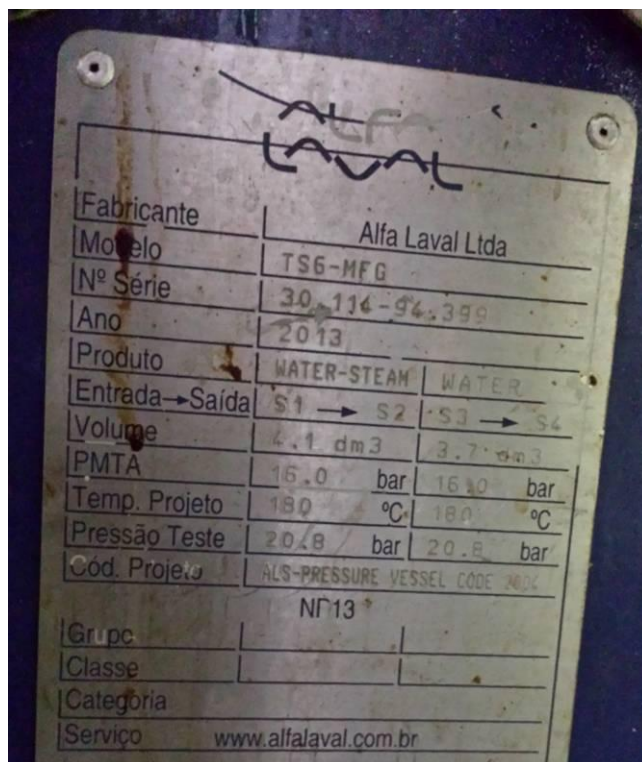 ALFA
LAVAL
Fabricante Alfa Laval Ltda
Modelo TS6-MFG
Nº Série 30.114-94.399
Ano 2013
Produto WATER-STEAM WATER
Entrada→Saída S1 → S2 S3 → S4
Volume 4.1 dm3 3.7 dm3
PMTA 16.0 bar 16.0 bar
Temp. Projeto 180 ºC 180 ºC
Pressão Teste 20.8 bar 20.8 bar
Cód. Projeto ALS-PRESSURE VESSEL CODE 2004
NR13
Grupo
Classe
Categoria
Serviço www.alfalaval.com.br